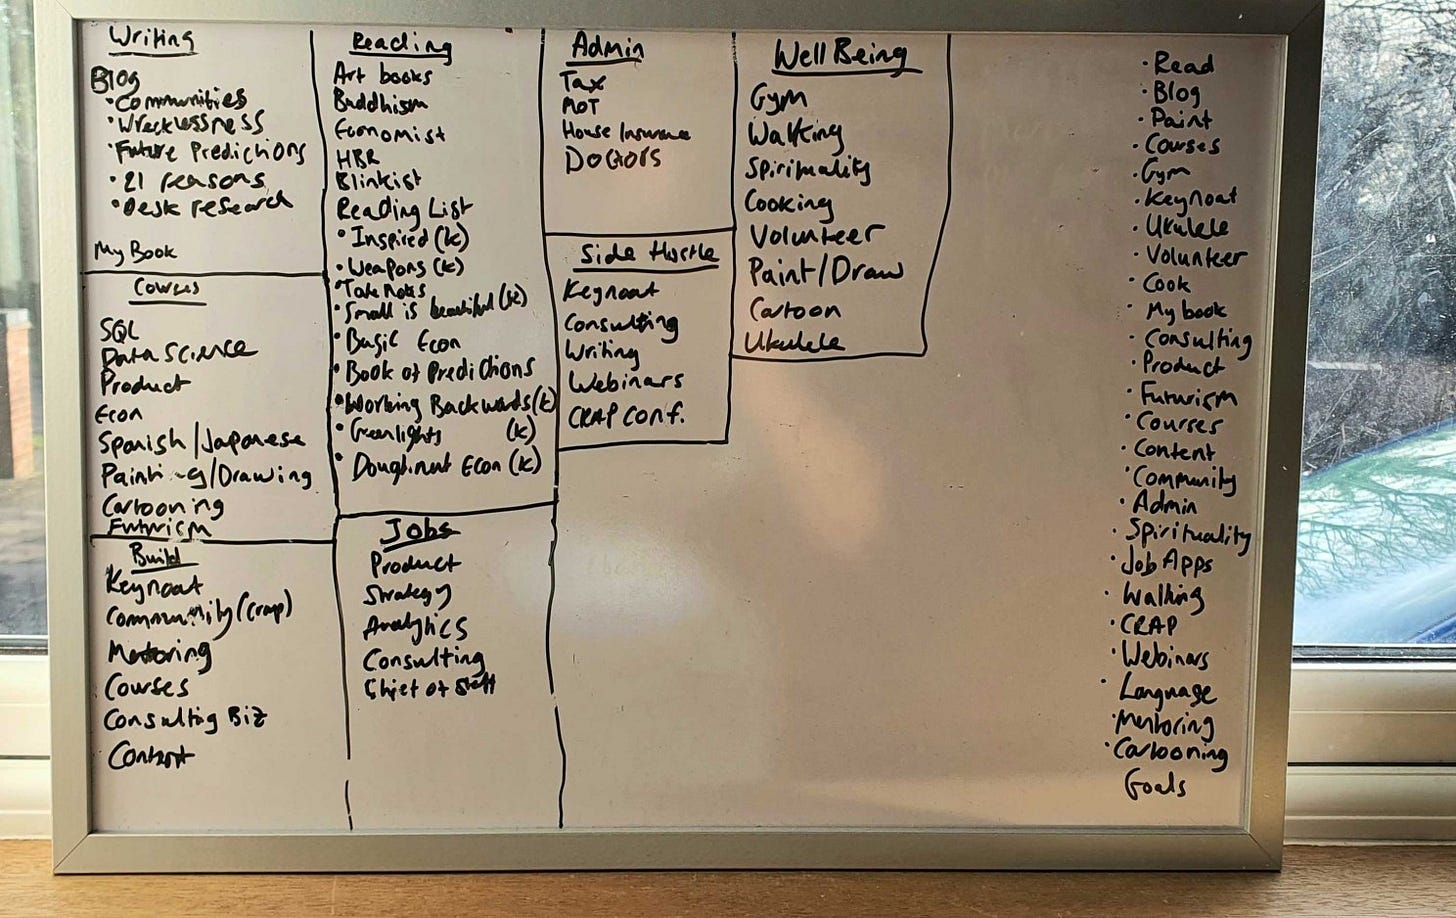 Writing
Blog
• Communities
• Wrecklessness
• Future Predictions
• 21 reasons
• Desk research
My Book
Courses
SQL
Data Science
Product
Econ
Spanish/Japanese
Painting/Drawing
Cartooning
Futurism
Build
Keynoat
Community (crap)
Mentoring
Courses
Consulting Biz
Content
Reading
Art books
Buddhism
Economist
HBR
Blinkist
Reading List
• Inspired (k)
• Weapons (k)
• Take Notes
• Small is beautiful (k)
• Basic Econ
• Book of Predictions
• Working Backwards (k)
• Greenlights (k)
• Doughnut Econ (k)
Jobs
Product
Strategy
Analytics
Consulting
Chief of Staff
Admin
Tax
MOT
House Insurance
Doctors
Side Hustle
Keynoat
Consulting
Writing
Webinars
CRAP Conf.
Well Being
Gym
Walking
Spirituality
Cooking
Volunteer
Paint/Draw
Cartoon
Ukulele
• Read
• Blog
• Paint
• Courses
• Gym
• Keynoat
• Ukulele
• Volunteer
• Cook
• My book
• Consulting
• Product
• Futurism
• Courses
• Content
• Community
• Admin
• Spirituality
• Job Apps
• Walking
• CRAP
• Webinars
• Language
• Mentoring
• Cartooning
Goals